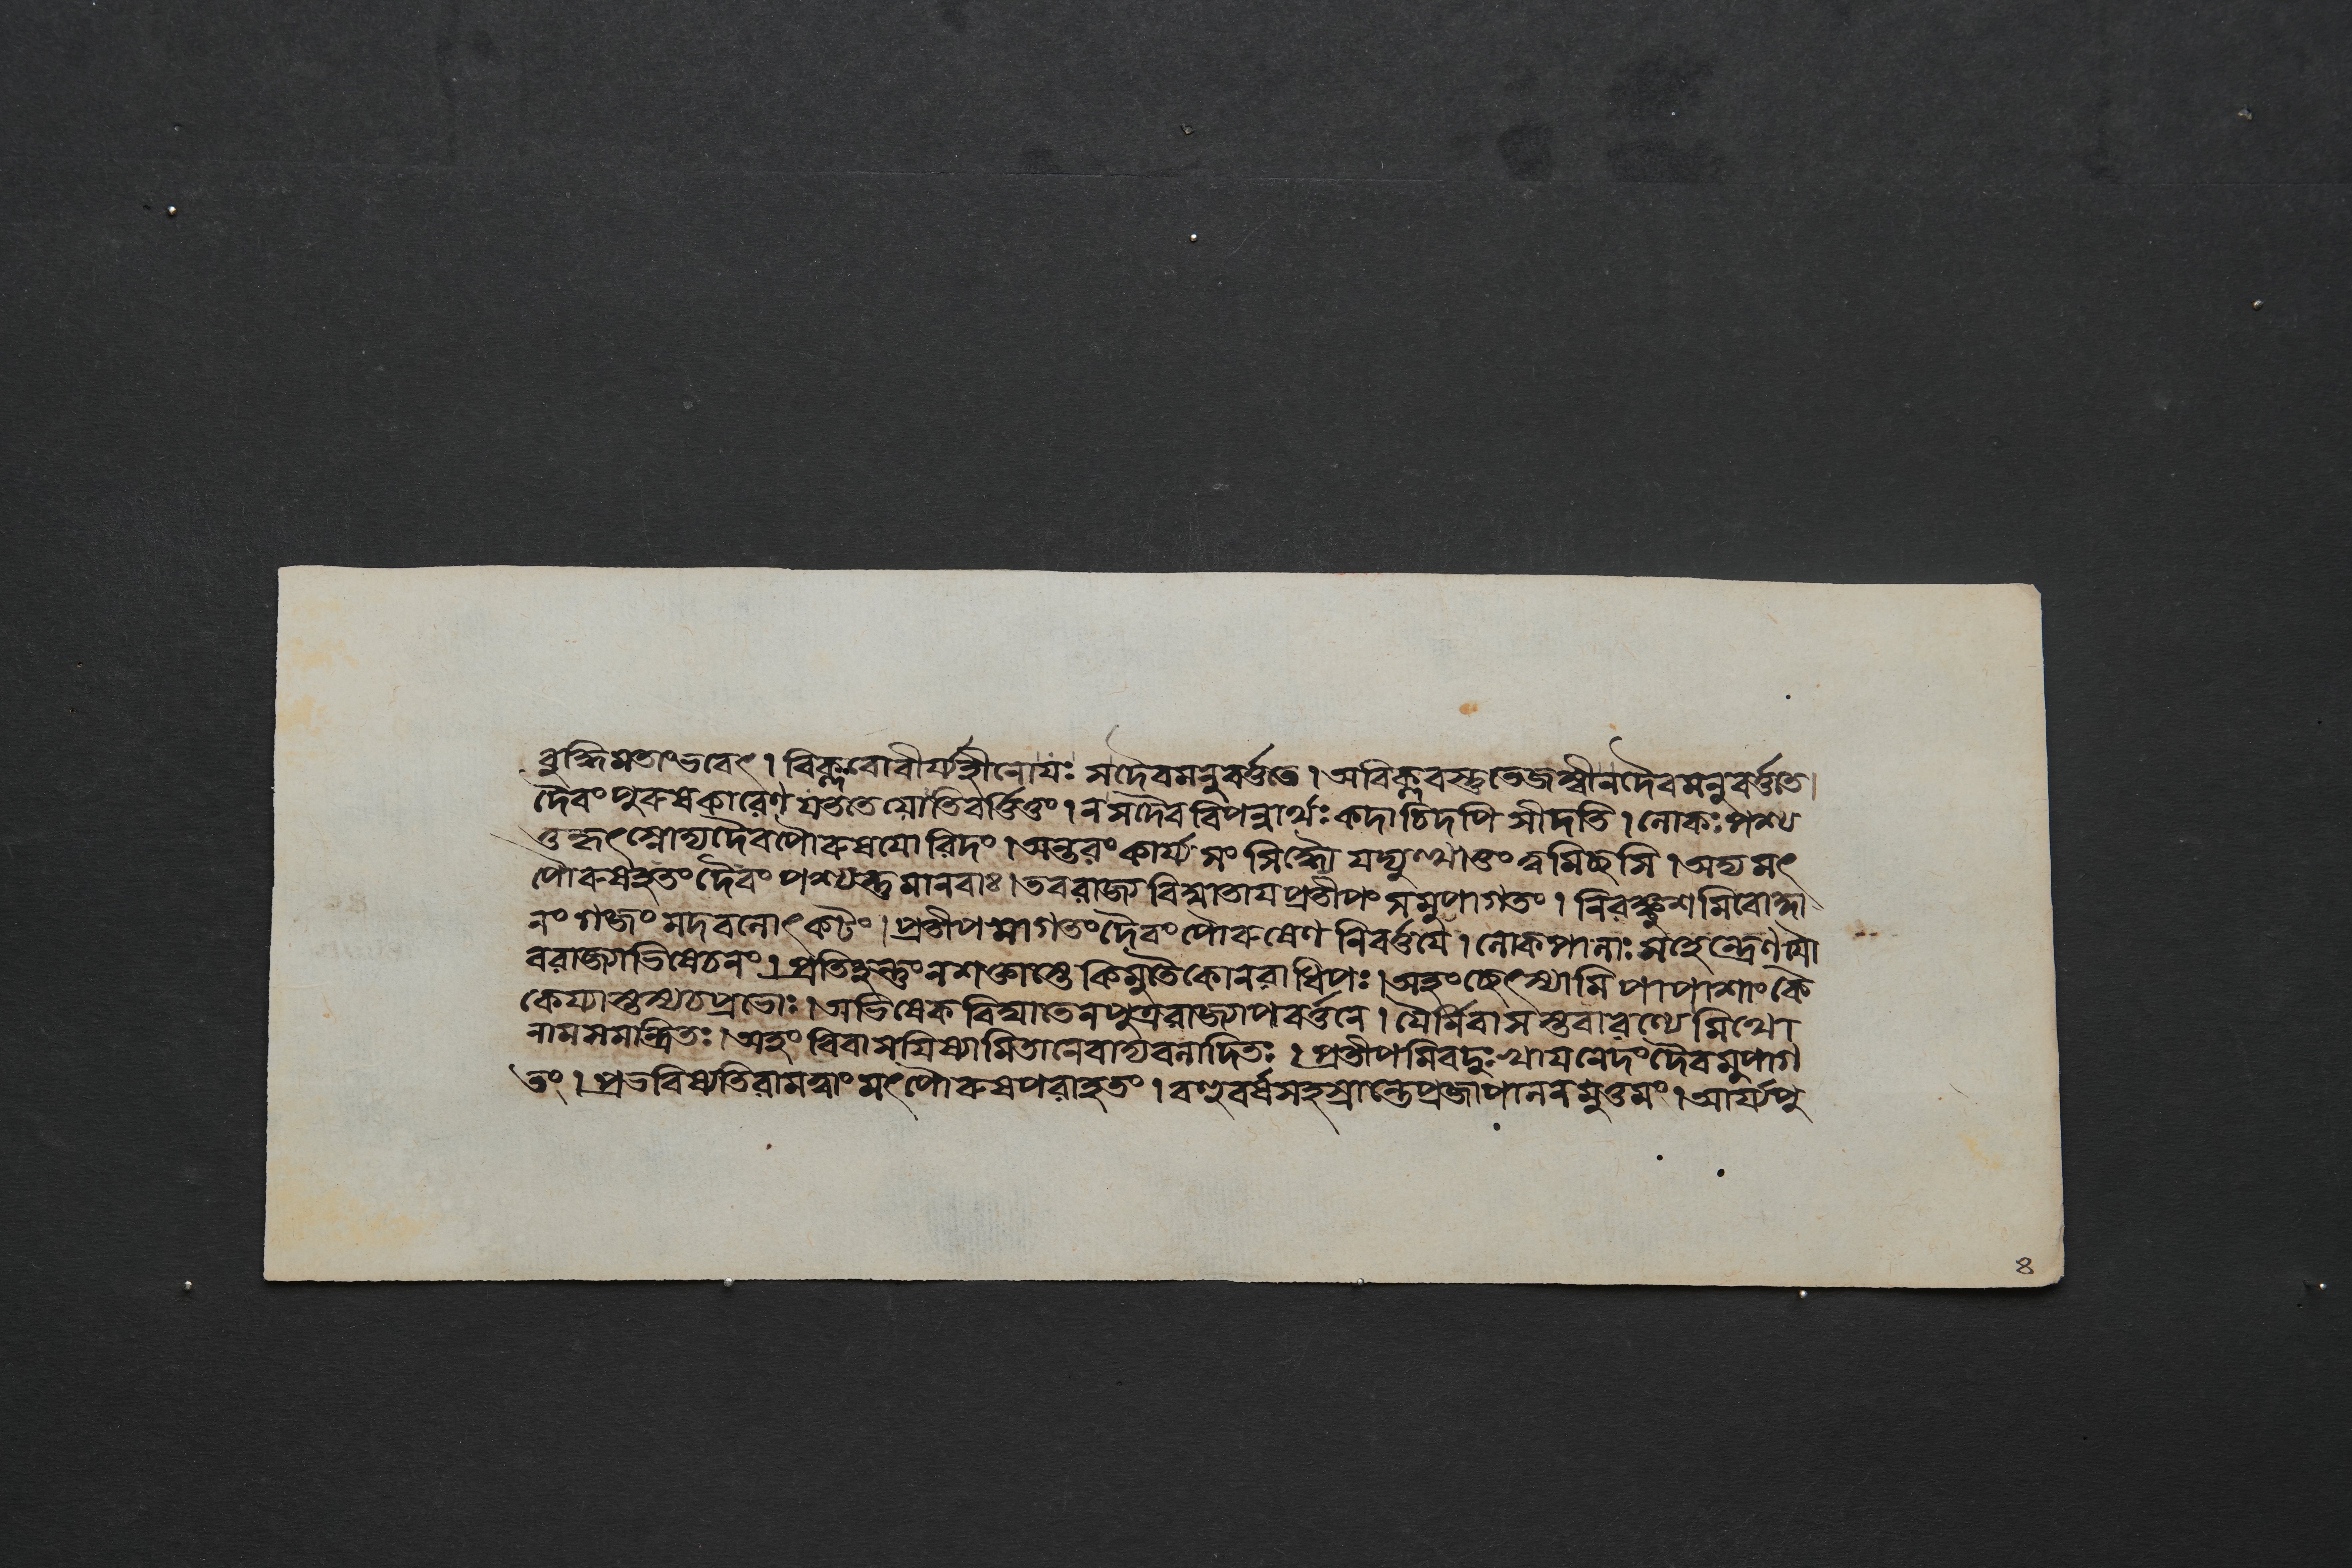 বুদ্ধিমতাংভবেৎ। বিক্লবোবীর্য্যহীনোযঃ সদৈবমনুবর্ত্ততে। অবিক্লবস্তুতেজস্বীনদৈবমনুবর্ত্ততে।
দৈবং পুরুষকারেণ যততেযোতিবর্ত্তিতুং। নসদৈববিপন্নার্থঃ কদাচিদপি সীদতি। লোকঃ পশ্য
তুহ্নৎস্নোদ্যদৈবপৌরুষযোরিদং। অন্তরং কার্য্যসংসিদ্ধৌ যদ্যুত্থাতুং ত্বমিচ্ছসি। অদ্যমৎ
পৌরুষহতং দৈবং পশ্যন্তু মানবাঃ। তবরাজ্যবিঘাতায প্রতীপং সমুপাগতং। নিরঙ্কুশমিবোদ্দা
নং গজং মদবলোৎকটং। প্রতীপমাগতং দৈবং পৌরুষেণ নিবর্ত্তযে। লোকপালাঃ মহেন্দ্রেণ যৌ
বরাজ্যাভিষেচনং। প্রতিহন্তুং নশক্তাস্তে কিমুতৈকোনরাধিপঃ। অহং ছেৎস্যামি পাপাশাং কৈ
কেয্যাস্তস্যচপ্রভোঃ। অভিষেকবিঘাতেনপুত্ররাজ্যাপবর্ত্তনে। যৈর্নিবাসস্তবারণ্যে মিথো
নামসমন্ত্রিতঃ। অহং বিবাসযিষ্যামিতানেবাদ্যবনাদিতঃ। প্রতীপমিবদুঃখাযনেদং দৈবমুপাগ
তং। প্রভবিষ্যতিরামত্বাং মৎপৌরুষপরাহতং। বহুবর্ষসহস্রান্তেপ্রজাপালনমুত্তমং। আর্য্যপু
৪